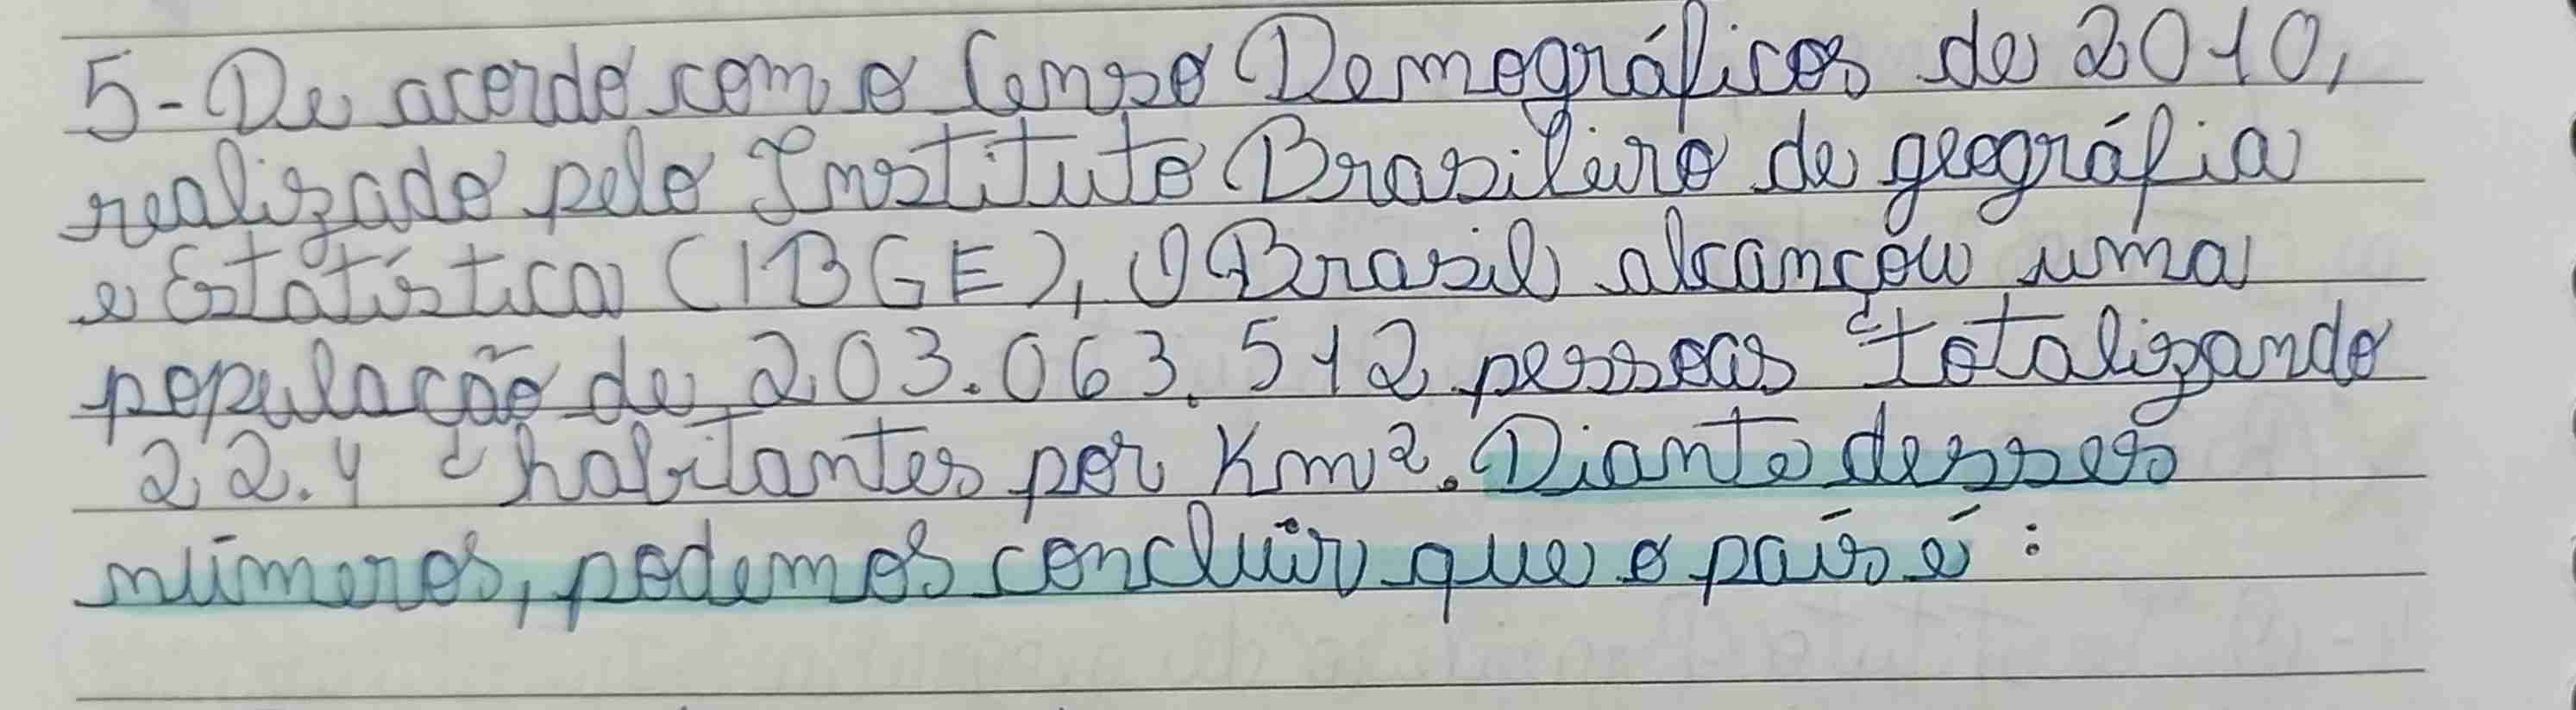 5- De acordo com o Censo Demográficos de 2010,
realizado pelo Instituto Brasileiro de geográfia
e Estatística (IBGE), O Brasil alcançou uma
população de 203.063.512 pessoas totalizando
22.4 habitantes por Km². Diante desses
números, podemos concluir que o país é: